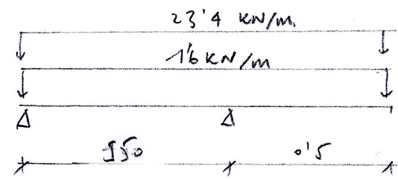 23'4 KN/m.
1'6 KN/m
0'5